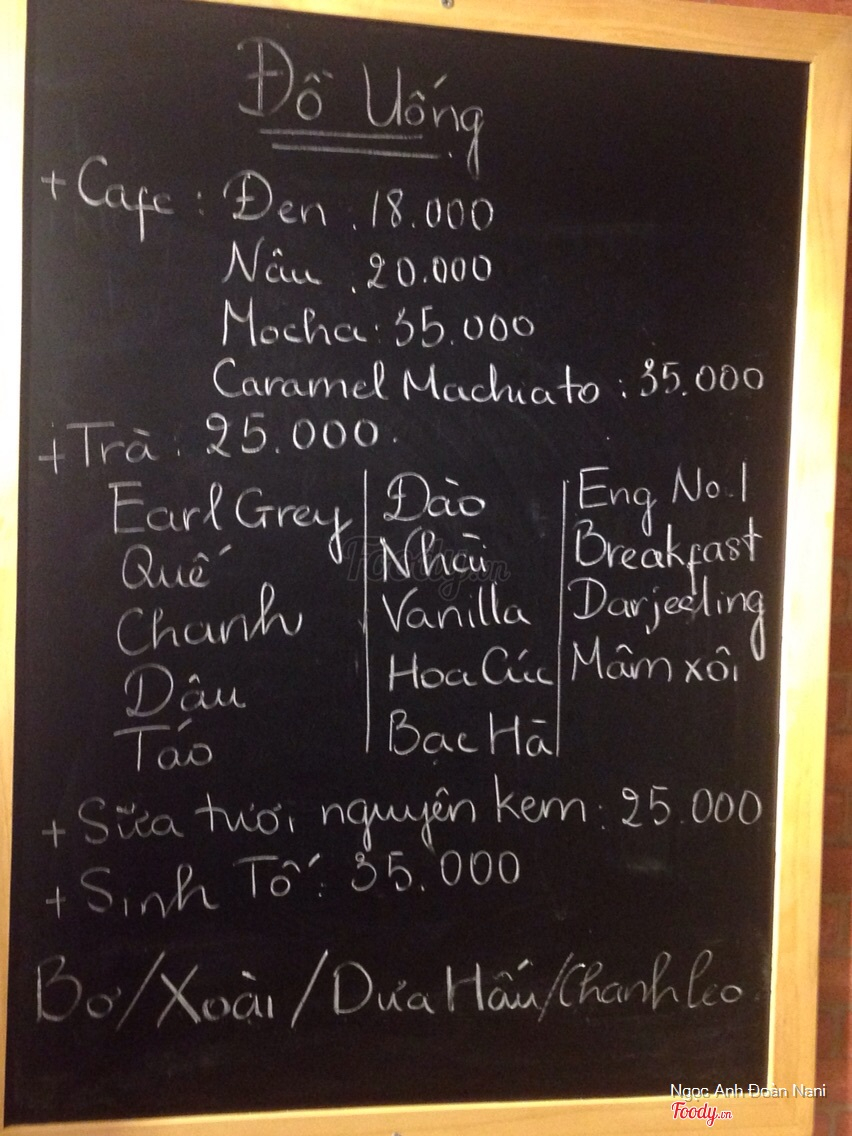 Đồ Uống
+ Cafe : Đen : 18.000
Nâu : 20.000
Mocha : 35.000
Caramel Machiato : 35.000
+ Trà : 25.000.
Earl Grey
Quế
Chanh
Dâu
Táo
Đào
Nhài
Vanilla
Hoa Cúc
Bạc Hà
Eng No.1
Breakfast
Darjeeling
Mâm xôi
+ Sữa tươi nguyên kem : 25.000
+ Sinh Tố : 35.000
Bơ/Xoài/Dưa Hấu/Chanh leo
Foody.vn
Ngọc Anh Đoàn Nani
Foody.vn